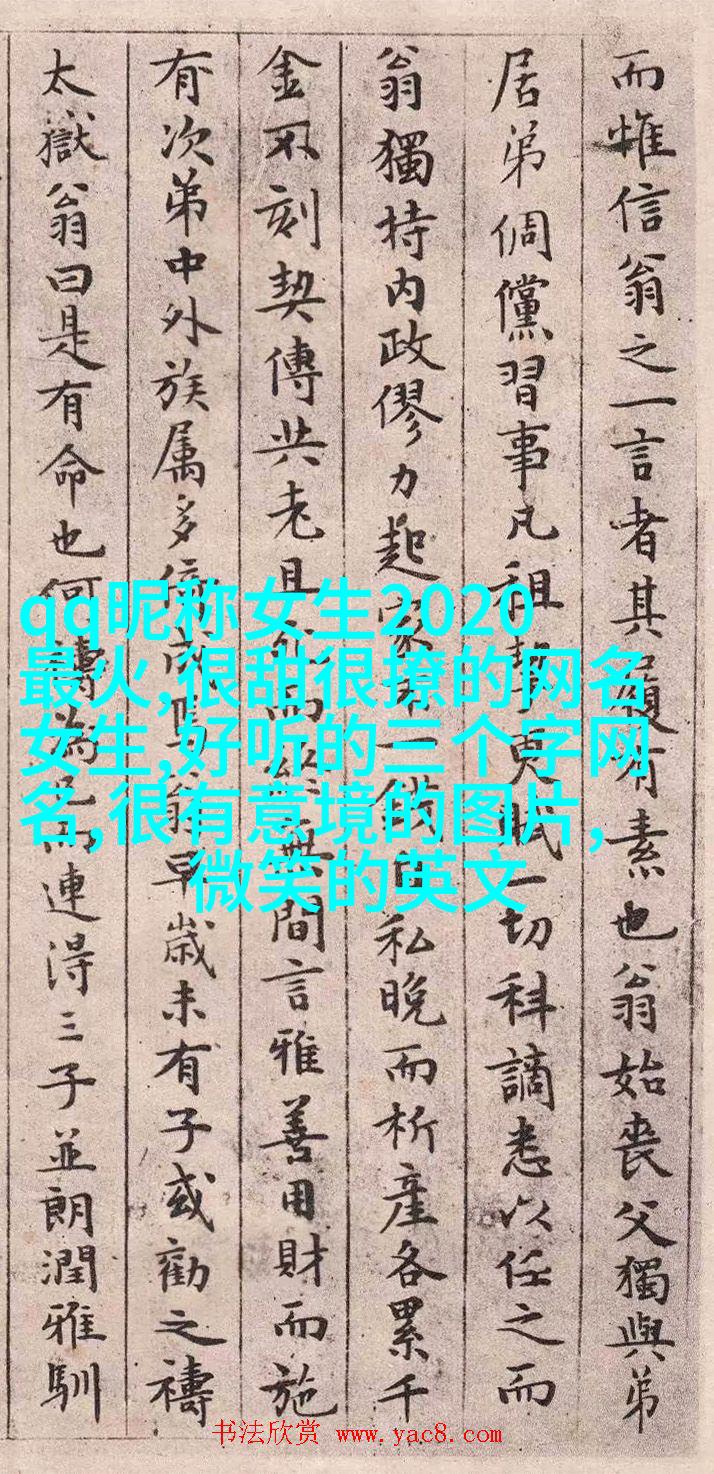 而惟信翁之一言者其履有素也翁始喪父獨與弟
居弟倜儻習事凡租契更賦一切科謫悉以任之而
翁獨持内政僇力起家一錢自私晚而析產各累千
金不刻契傳共老且死而無間言雅善用財而施
有次第中外族属多倚成焉翁早歳未有子或勸之禱
太嶽翁曰是有命也何禱為已而連得三子並朗潤雅馴
qq昵称女生2020
最火,很甜很撩的网名
女生,好听的三个字网
名,很有意境的图片,
微笑的英文
书法欣赏 www.yac8.com